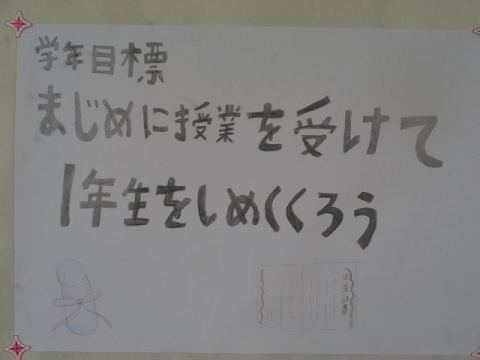 学年目標
まじめに授業を受けて
1年生をしめくくろう